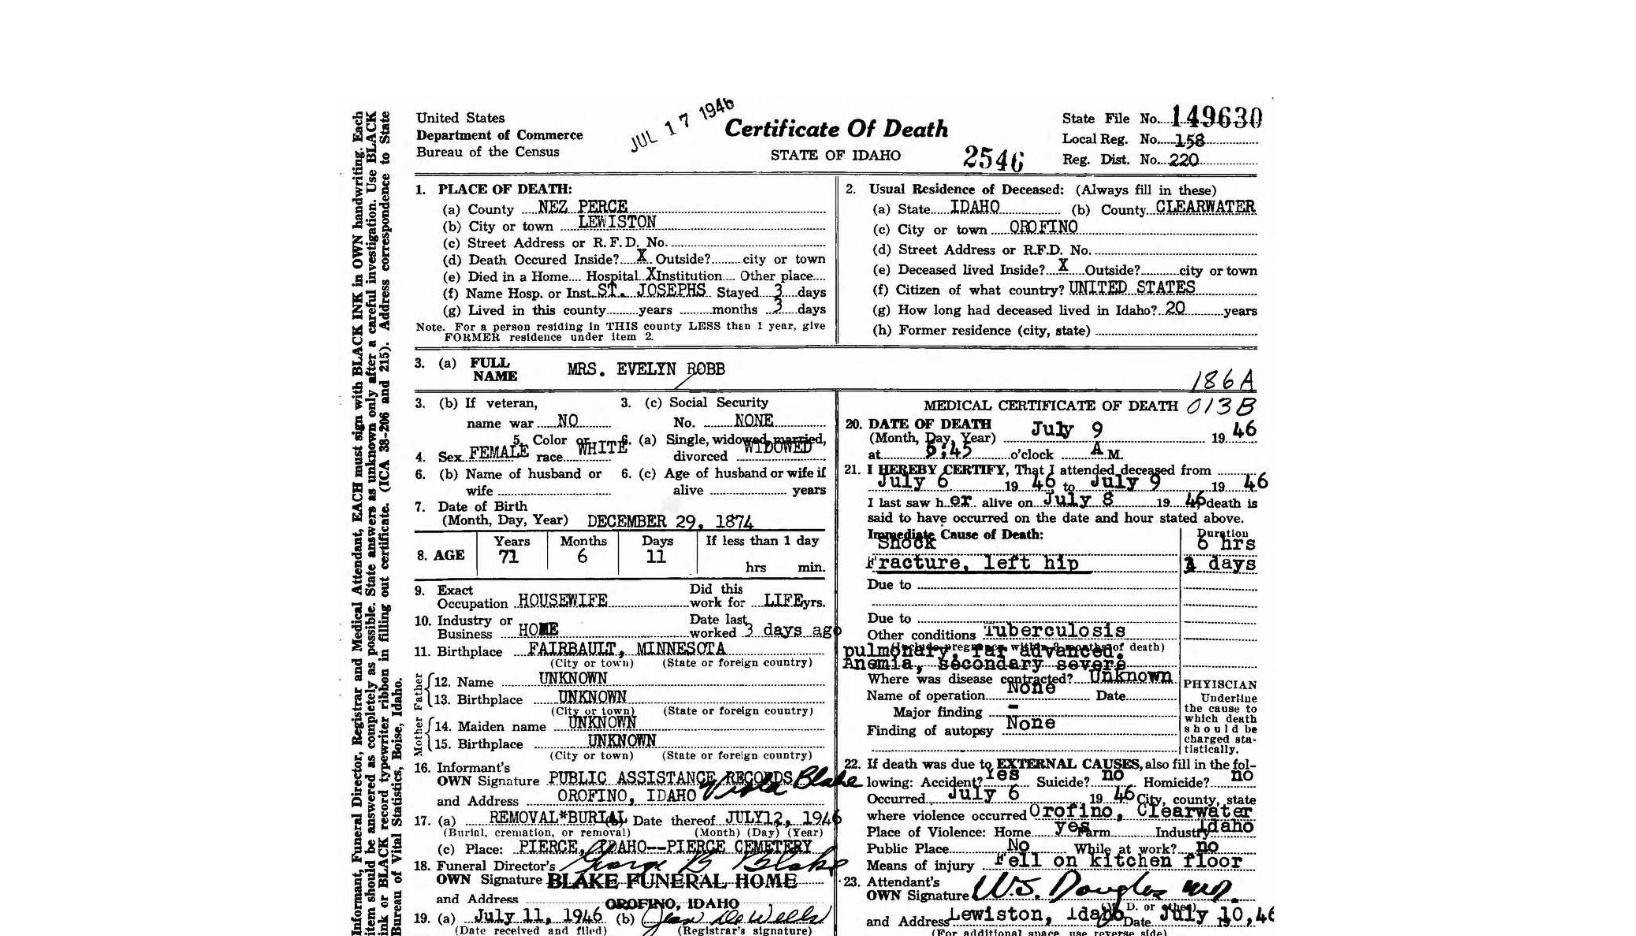 Informant, Funeral Director, Registrar and Medical Attendant, EACH must sign with BLACK INK in OWN handwriting. Each
item should be answered as completely as possible. State answers as unknown only after a careful investigation. Use BLACK
ink or BLACK record typewriter ribbon in filling out certificate. (ICA 38-206 and 215). Address correspondence to State
Bureau of Vital Statistics, Boise, Idaho.
United States
Department of Commerce
Bureau of the Census
JUL 17 1946
Certificate Of Death
STATE OF IDAHO
2546
State File No. 149630
Local Reg. No. 158
Reg. Dist. No. 220
1. PLACE OF DEATH:
(a) County NEZ PERCE
(b) City or town LEWISTON
(c) Street Address or R. F. D. No.
(d) Death Occured Inside? X Outside? city or town
(e) Died in a Home Hospital X Institution Other place
(f) Name Hosp. or Inst. ST. JOSEPHS Stayed 3 days
(g) Lived in this county years months 3 days
Note. For a person residing in THIS county LESS than 1 year, give
FORMER residence under item 2.
2. Usual Residence of Deceased: (Always fill in these)
(a) State IDAHO (b) County CLEARWATER
(c) City or town OROFINO
(d) Street Address or R.F.D. No.
(e) Deceased lived Inside? X Outside? city or town
(f) Citizen of what country? UNITED STATES
(g) How long had deceased lived in Idaho? 20 years
(h) Former residence (city, state)
3. (a) FULL NAME MRS. EVELYN ROBB
186A
013B
3. (b) If veteran, name war NO
3. (c) Social Security No. NONE
4. Sex FEMALE 5. Color or race WHITE 6. (a) Single, widowed, married, divorced WIDOWED
6. (b) Name of husband or wife
6. (c) Age of husband or wife if alive years
7. Date of Birth
(Month, Day, Year) DECEMBER 29, 1874
8. AGE Years 71 Months 6 Days 11 If less than 1 day hrs min.
9. Exact Occupation HOUSEWIFE Did this work for LIFE yrs.
10. Industry or Business HOME Date last worked 3 days ago
11. Birthplace FAIRBAULT, MINNESOTA
(City or town) (State or foreign country)
Father
12. Name UNKNOWN
13. Birthplace UNKNOWN
(City or town) (State or foreign country)
Mother
14. Maiden name UNKNOWN
15. Birthplace UNKNOWN
(City or town) (State or foreign country)
16. Informant's
OWN Signature PUBLIC ASSISTANCE RECORDS Viola Blake
and Address OROFINO, IDAHO
17. (a) REMOVAL*BURIAL (b) Date thereof JULY12, 1946
(Burial, cremation, or removal) (Month) (Day) (Year)
(c) Place: PIERCE, IDAHO--PIERCE CEMETERY
18. Funeral Director's George B Blake
OWN Signature BLAKE FUNERAL HOME
and Address OROFINO, IDAHO
19. (a) July 11, 1946 (b)
(Date received and filed) (Registrar's signature)
MEDICAL CERTIFICATE OF DEATH
20. DATE OF DEATH
(Month, Day, Year) July 9 19 46
at :45 o'clock A M.
21. I HEREBY CERTIFY, That I attended deceased from
July 6 19 46 to July 9 19 46
I last saw h er alive on July 8 19 46 death is
said to have occurred on the date and hour stated above.
Immediate Cause of Death: Duration
Shock 6 hrs
Fracture, left hip days
Due to
Due to
Other conditions Tuberculosis
(Include pregnancy within 3 months of death)
pulmonary, far advanced.
Anemia, secondary severe
Where was disease contracted? Unknown
Name of operation None Date
Major finding -
Finding of autopsy None
PHYISCIAN
Underline
the cause to
which death
should be
charged sta-
tistically.
22. If death was due to EXTERNAL CAUSES, also fill in the fol-
lowing: Accident? Yes Suicide? no Homicide? no
Occurred July 6 19 46 City, county, state
where violence occurred Orofino, Clearwater
Idaho
Place of Violence: Home yes Farm Industry
Public Place No While at work? no
Means of injury Fell on kitchen floor
23. Attendant's
OWN Signature W.S. Douglas M.D.
(M. D. or other)
and Address Lewiston, Idaho Date July 10,46
(For additional space, use reverse side)